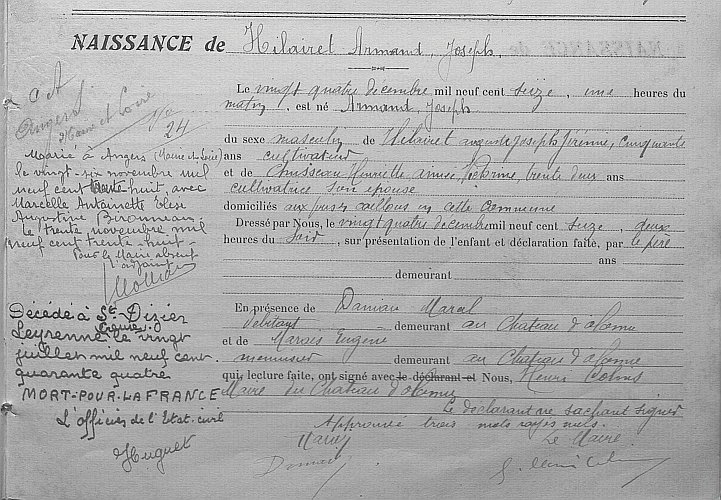 NAISSANCE de Hilairet Armand, Joseph,
Le vingt quatre decembre mil neuf cent seize, une heures du
matin, est né Armand, Joseph
du sexe masculin de Hilairet auguste Joseph Jérémie, cinquante
ans cultivateur
et de Henriette aimée trente deux ans
cultivatrice son épouse
domiciliés aux cailloux en cette Commune
Dressé par Nous, le vingt quatre decembre mil neuf cent seize, deux
heures du soir, sur présentation de l'enfant et déclaration faite, par le père
ans
demeurant
En présence de Damian Marcel
debitant demeurant au Chateau d'olonne
et de Marais Eugène
menuisier demeurant au Chateau d'olonne
qui, lecture faite, ont signé avec le déclarant et Nous, Henri
Maire du Chateau d'olonne
Le declarant ne sachant signer
Approuvé trois mots rayés nuls.
Le Maire
Angers
Maine et Loire
24
Marié à Angers (Maine-et-Loire)
le vingt-six novembre mil
neuf cent trente huit, avec
Marcelle Antoinette Elise
Augustine
Le trente novembre mil
neuf cent trente-huit-
Pour le Maire absent
l'adjoint
Décédé à St Dizier
Leyrenne le vingt
juillet mil neuf cent.
quarante quatre
MORT-POUR-LA FRANCE
L'officier de l'Etat-civil
Huguet